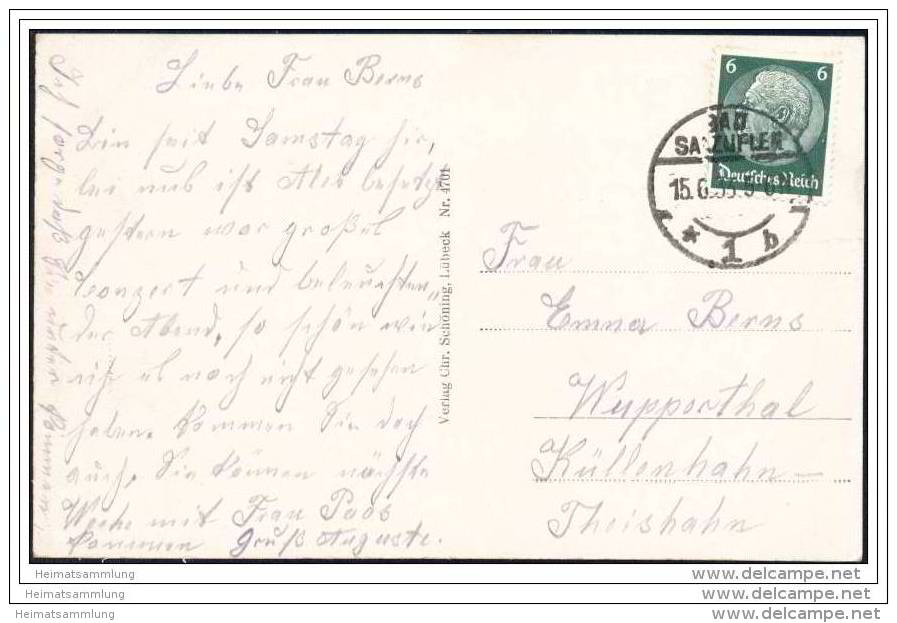 Liebe Frau Berns
Bin seit Samstag hier,
bei uns ist Alles besetzt
gestern war großes
Konzert und beleuchten„
der Abend, so schön wie
ich es noch nicht gesehen
haben. Kommen Sie doch
auch, Sie können nächste
Woche mit Frau Paas
kommen Gruß Auguste.
Ich sorge daß Sie
Verlag Chr. Schöning, Lübeck Nr. 4701
6 6
Deutsches Reich
BAD
SALZUFLEN
15.6.
* 1 b
Frau
Emma Berns
Wupperthal
Küllenhahn–
Theishahn
Heimatsammlung
Heimatsammlung
Heimatsammlung
www.delcampe.net
www.delcampe.net
www.delcampe.net